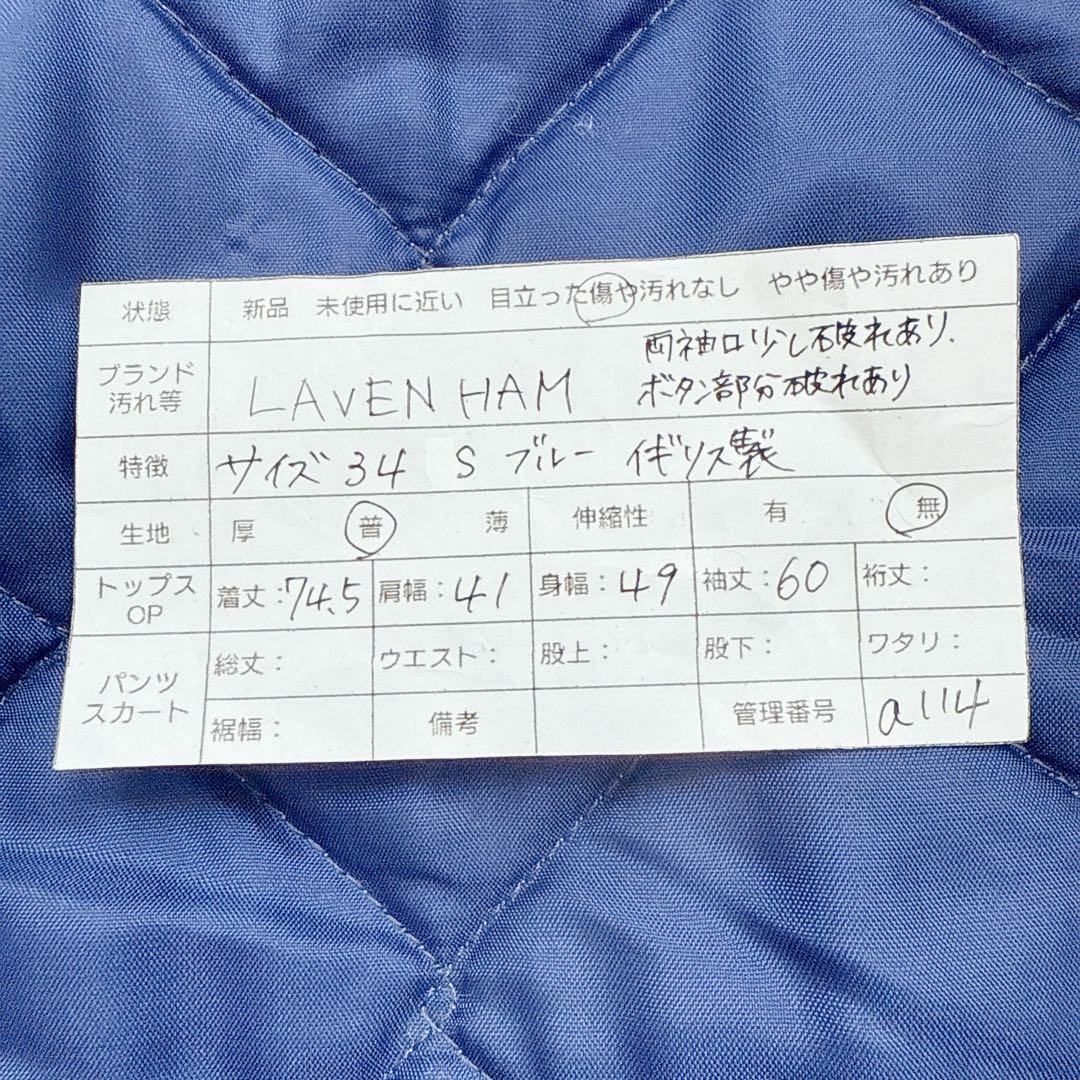 状態 新品 未使用に近い 目立った傷や汚れなし やや傷や汚れあり
ブランド
汚れ等
LAVENHAM
両袖口少し破れあり.
ボタン部分破れあり
特徴 サイズ34 S ブルー イギリス製
生地 厚 普 薄 伸縮性 有 無
トップス
OP
着丈:74.5 肩幅:41 身幅:49 袖丈:60 裄丈:
パンツ
スカート
総丈: ウエスト: 股上: 股下: ワタリ:
裾幅: 備考 管理番号 a114